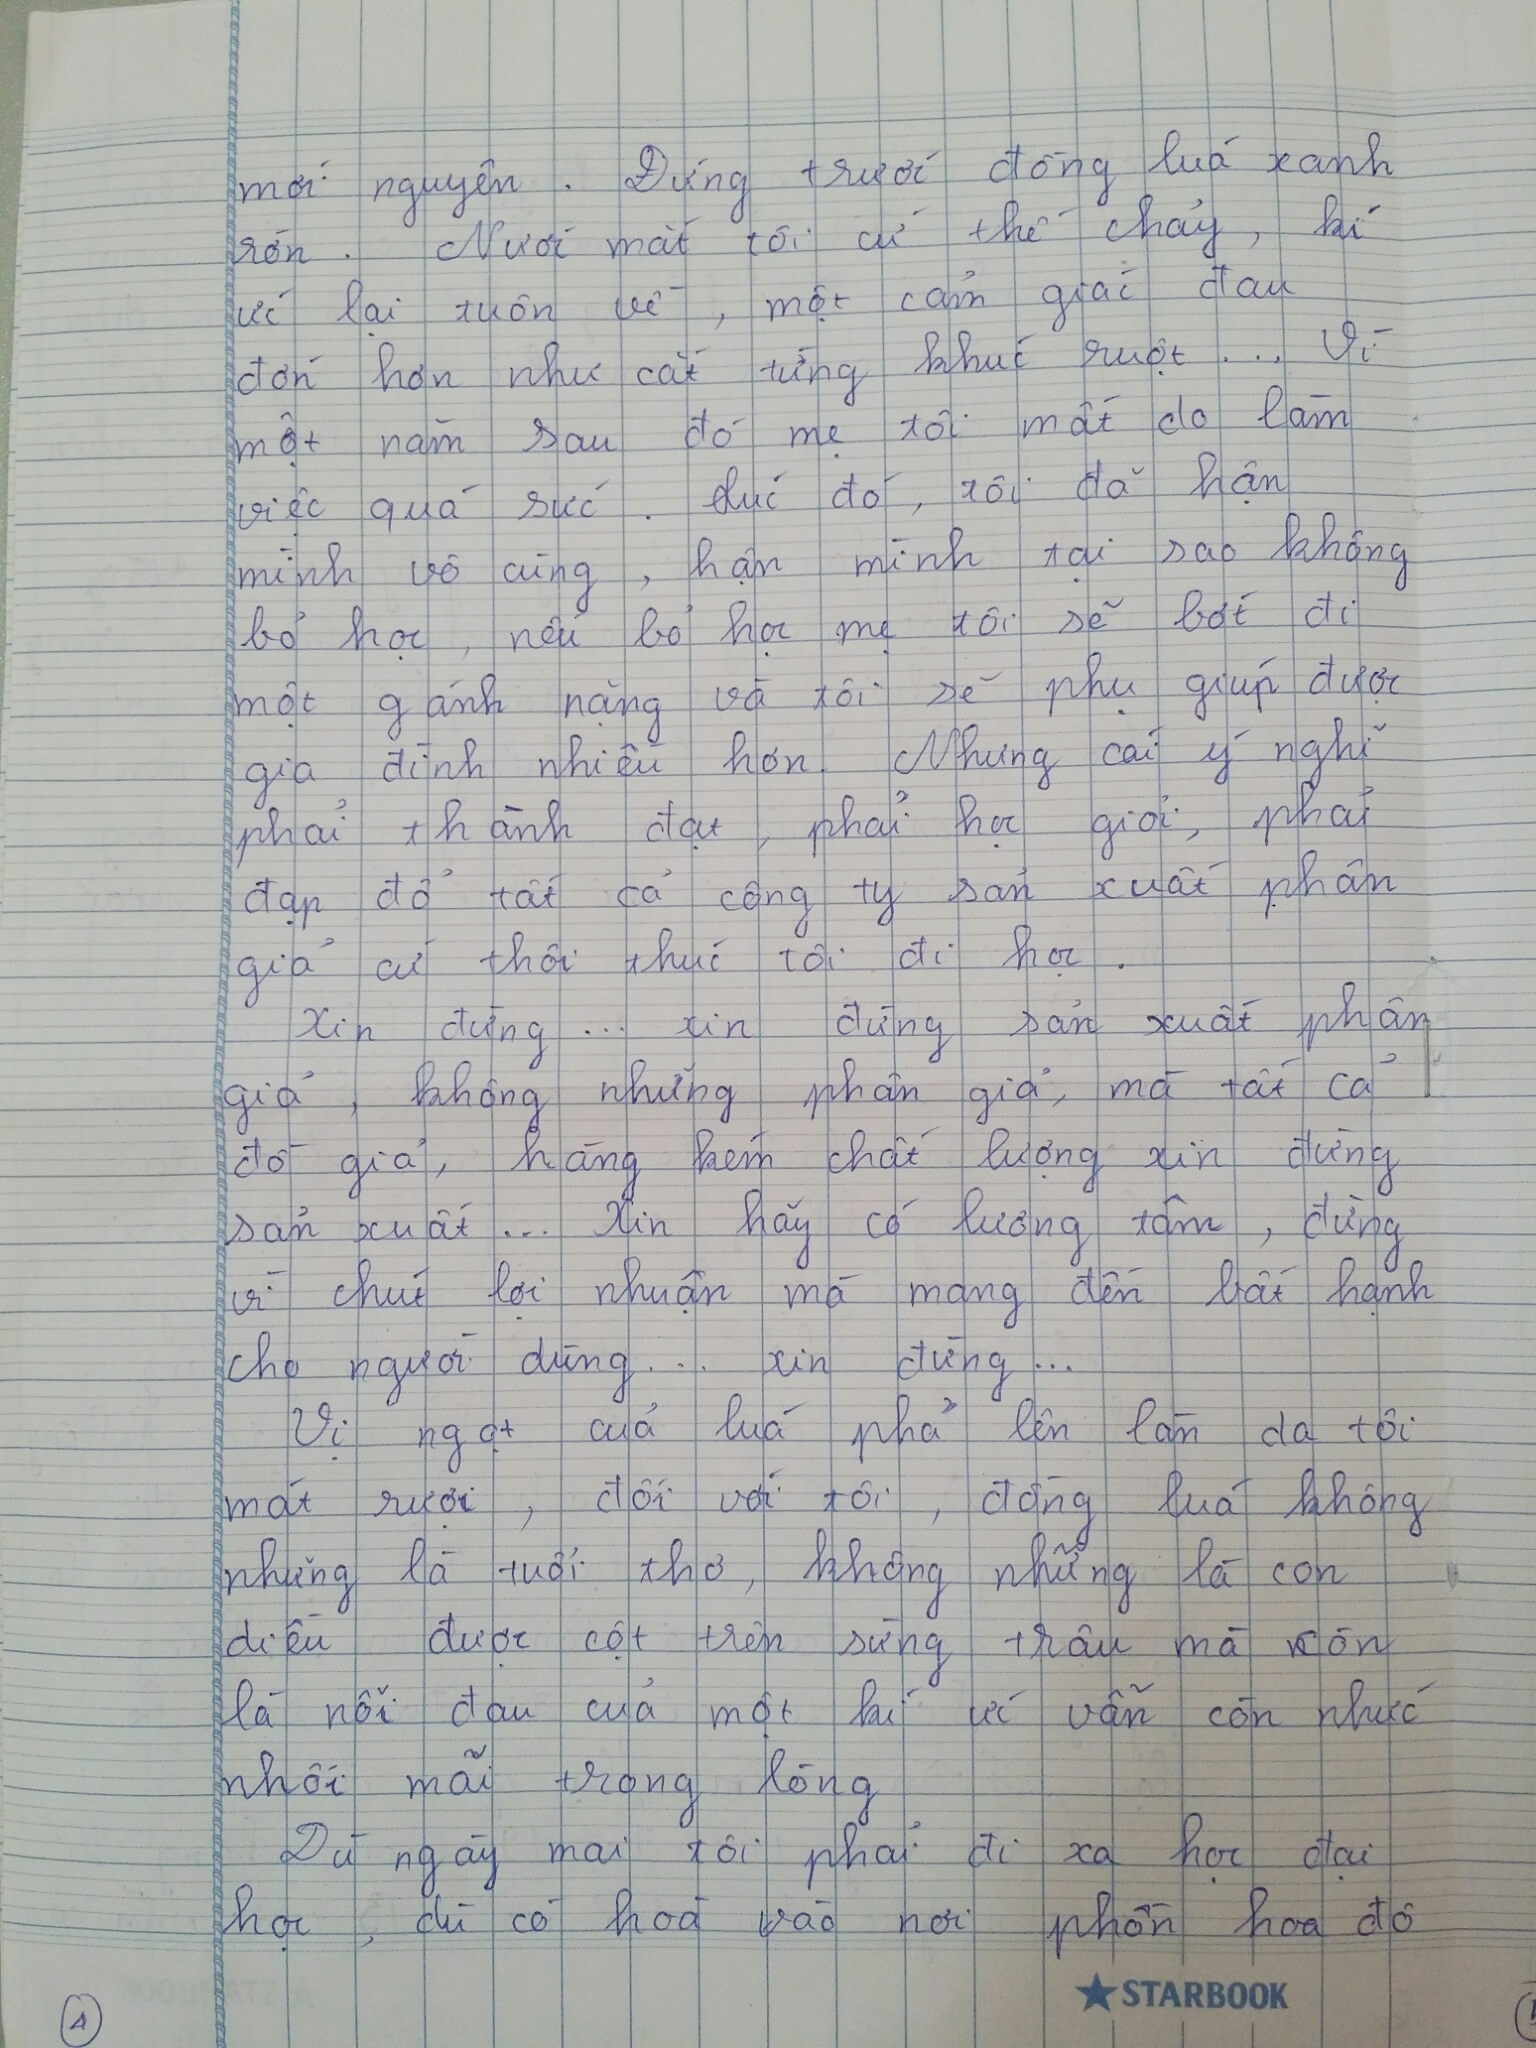 mới nguyên. Đứng trước đồng luá xanh
rờn. Nước mắt tôi cứ thế chảy, kí
ức lại tuôn về, một cảm giác đau
đớn hơn như cắt từng khúc ruột... Vì
một năm sau đó mẹ tôi mất do làm
việc quá sức. Lúc đó, tôi đã hận
mình vô cùng, hận mình tại sao không
bỏ học, nếu bỏ học mẹ tôi sẽ bớt đi
một gánh nặng và tôi sẽ phụ giúp được
gia đình nhiều hơn. Nhưng cái ý nghĩ
phải thành đạt, phải học giỏi, phải
đạp đổ tất cả công ty sản xuất phân
giả cứ thôi thúc tôi đi học.
Xin đừng... xin đừng sản xuất phân
giả, không những phân giả, mà tất cả
đồ giả, hàng kém chất lượng xin đừng
sản xuất... Xin hãy có lương tâm, đừng
vì chút lợi nhuận mà mang đến bất hạnh
cho người dùng... xin đừng...
Vị ngọt cuả luá phả lên làn da tôi
mát rượi, đối với tôi, đồng luá không
những là tuổi thơ, không những là con
diều được cột trên sừng trâu mà còn
là nỗi đau cuả một kí ức vẫn còn nhức
nhối mãi trong lòng
Dù ngày mai tôi phải đi xa học đại
học, dù có hoà vào nơi phồn hoa đô
★STARBOOK
4